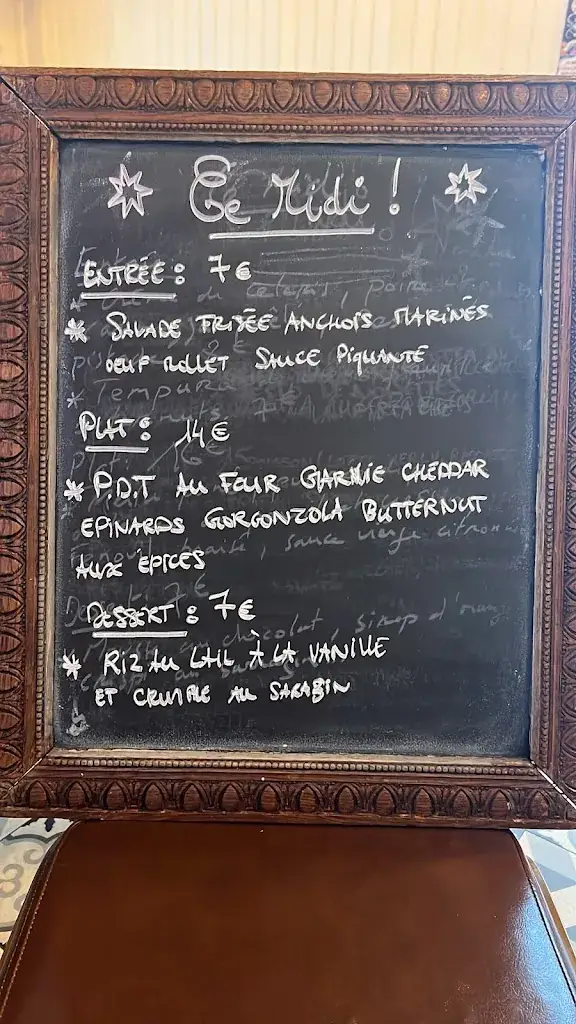 Ce Midi !
ENTRÉE : 7€
* SALADE FRISÉE ANCHOIS MARINÉS
OEUF MOLLET SAUCE PIQUANTE
PLAT : 14€
* P.D.T AU FOUR GARNIE CHEDDAR
EPINARDS GORGONZOLA BUTTERNUT
AUX EPICES
DESSERT : 7€
* RIZ AU LAIL À LA VANILLE
ET CRUMBLE AU SARAZIN